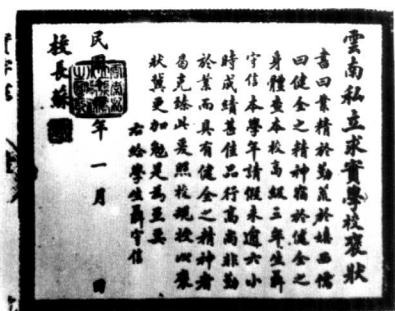 雲南私立求實學校褒狀
書曰業精於勤荒於嬉西儒
曰健全之精神宿於健全之
身體查本校高級三年生聶
守信本學年請假未逾六小
時成績善佳品行高尚非勤
於業而具有健全之精神者
曷克臻此爰照校規授此褒
狀冀更加勉是為至要
右給學生聶守信
民國 年一月 日
校長蘇